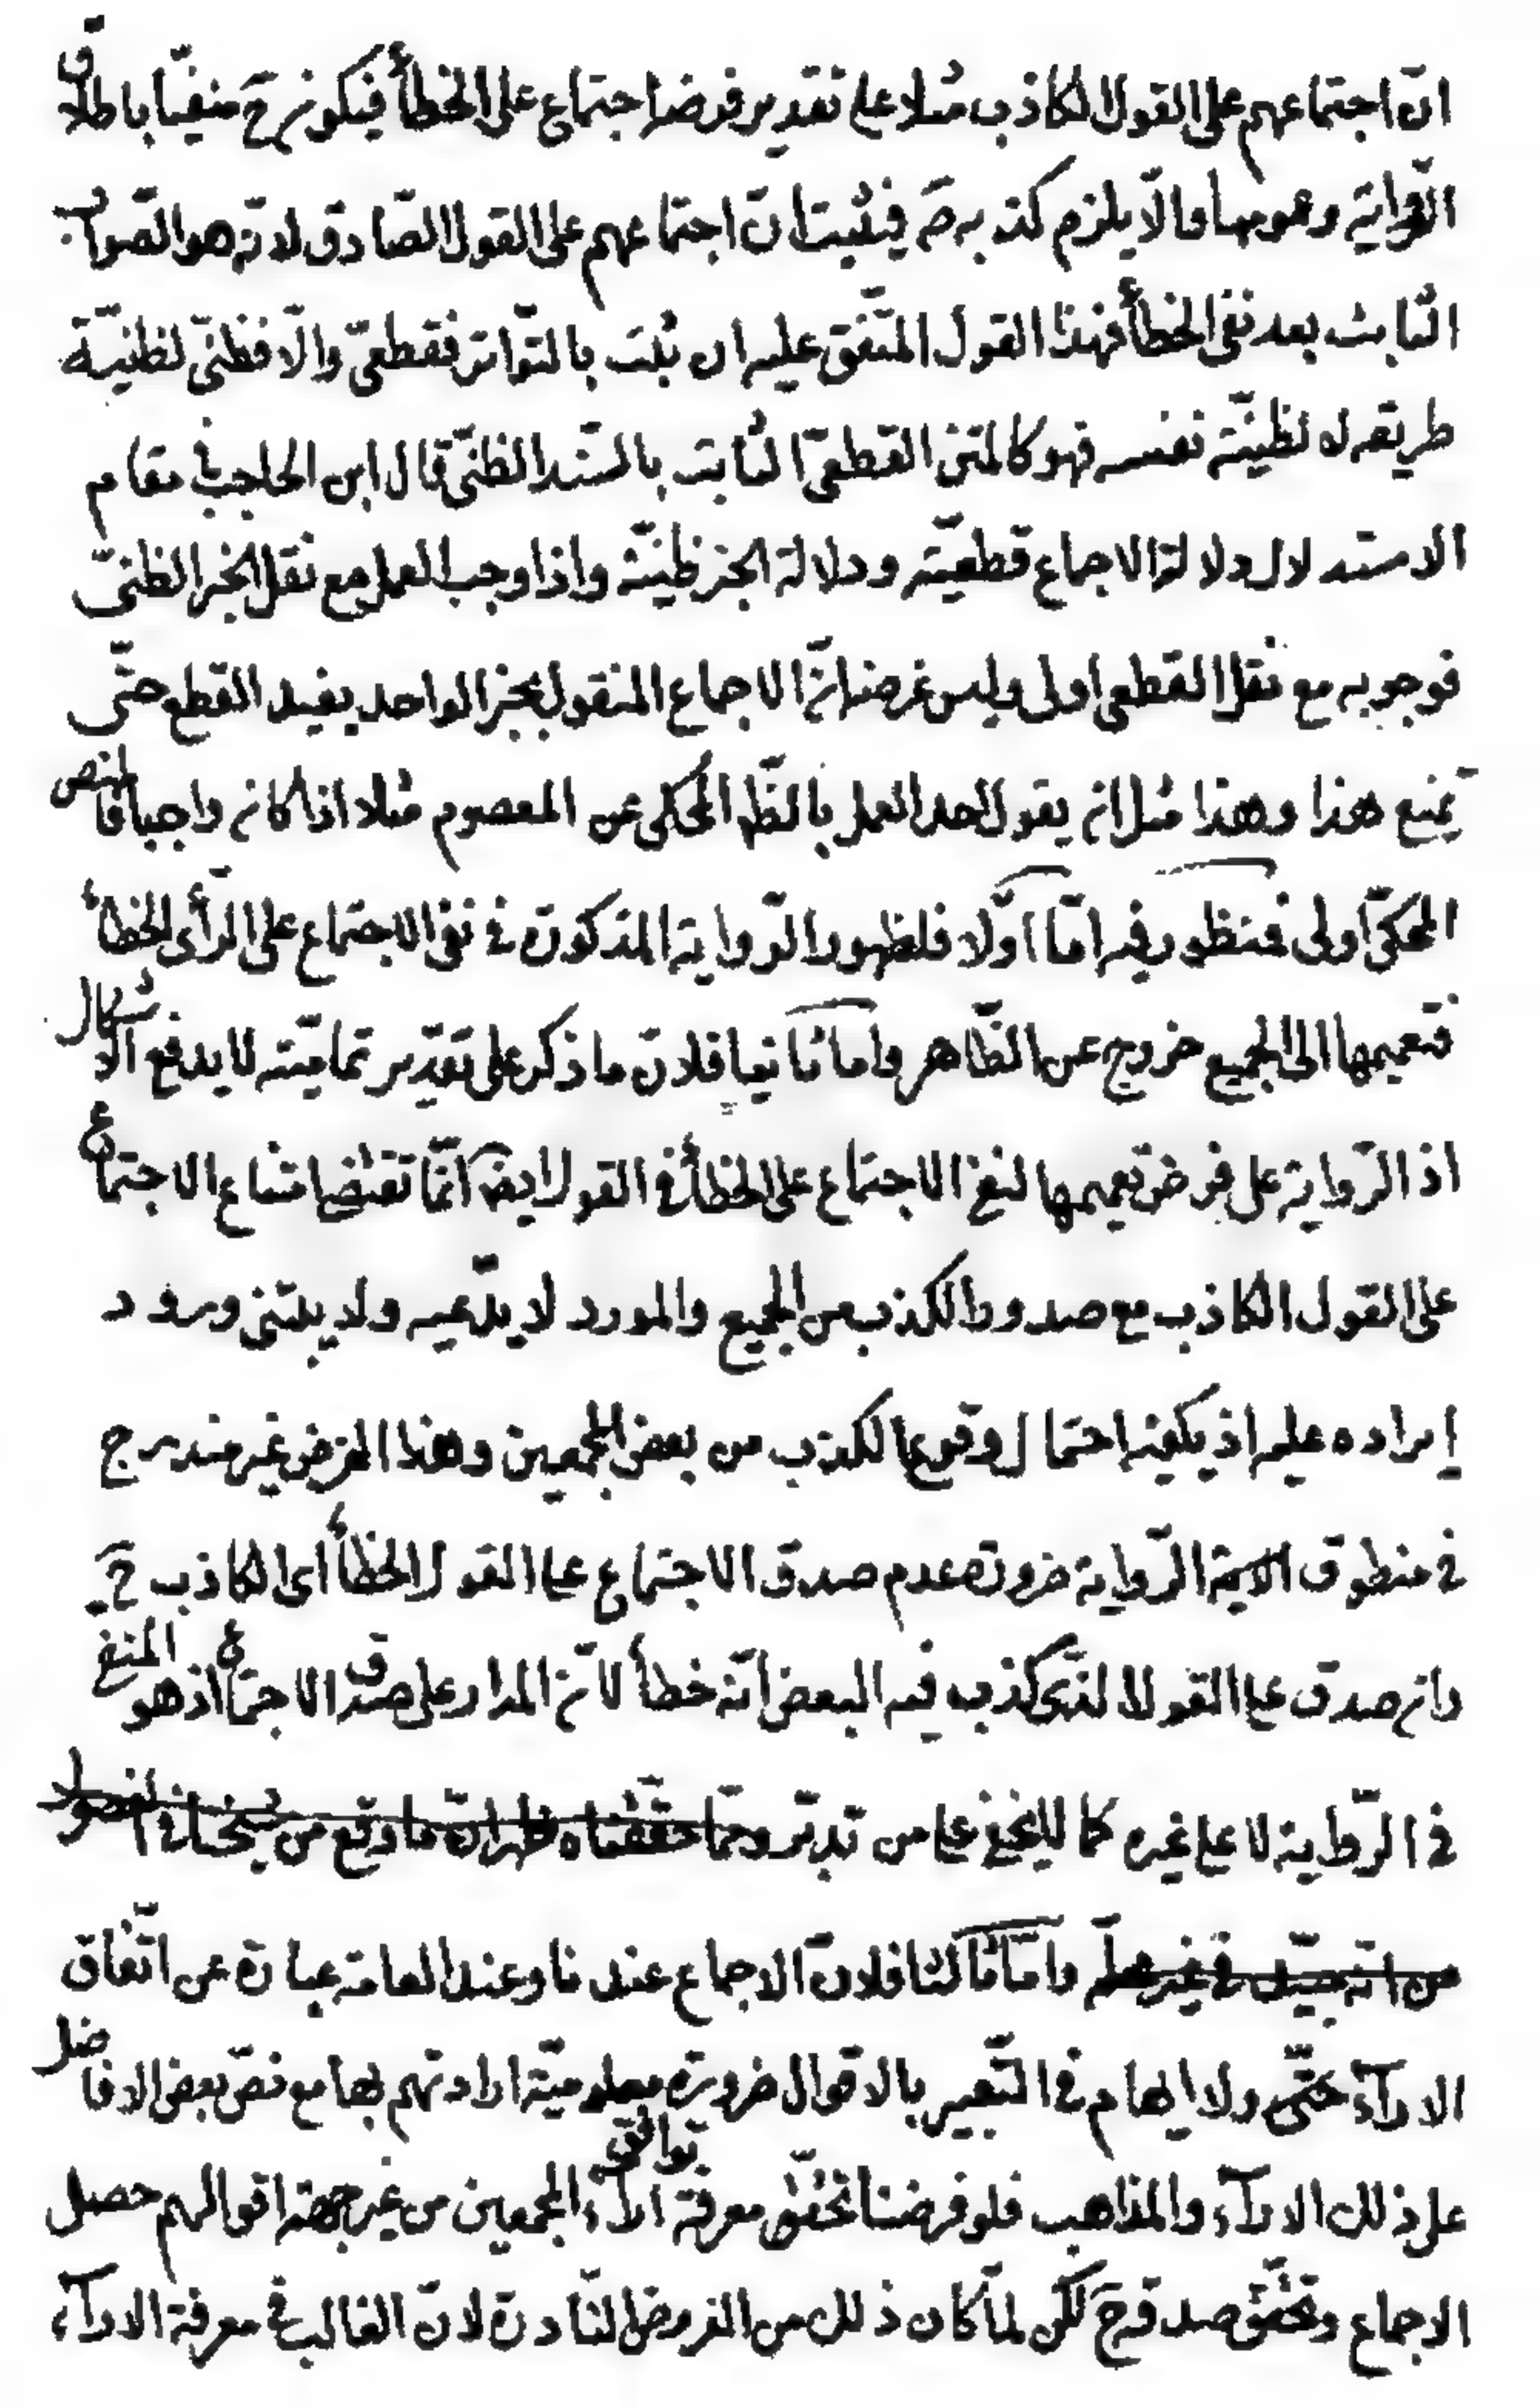 انّ اجتماعهم على القول الكاذب مثلا على تقدير فرض اجتماع على الخطأ فيكون ح منفيّا باطلاق
الرّواية وعمومها والّا يلزم كذبه ص فيثبت انّ اجتماعهم على القول الصّادق لانّه هو الصّواب
الثّابت بعد نفى الخطأ فهذا القول المتّفق عليه ان ثبت بالتّواتر فقطعىّ والّا فظنىّ لظنيّة
طريقه لا لظنيّة نفسه فهو كالمتن القطعىّ الثّابت بالسّند الظنىّ قال ابن الحاجب فى مقام
الاستدلال دلالة الاجماع قطعيّة ودلالة الخبر ظنيّة واذا وجب العمل مع نقل الخبر الظنىّ
فوجوبه مع نقل القطعى اولى وليس غرضه انّ الاجماع المنقول بخبر الواحد يفيد القطع حتّى
يمنع هذا وهذا مثل ان يقول احد العمل بالظّ المحكى عن المعصوم مثلا اذا كان واجبا فالنص
المحكىّ اولى فمنظور فيه امّا اوّلا فلظهور الرّواية المذكورة فى نفى الاجتماع على الرّأى الخطأ
فتعميمها الى الجميع خروج عن الظّاهر واما ثانيا فلانّ ما ذكر على تقدير تماميّته لا يدفع الاشكال
اذ الرّواية على فرض تعميمها لنفى الاجتماع على الخطأ فى القول ايض انّما تقتضى امتناع الاجتماع
على القول الكاذب مع صدور الكذب من الجميع والمورد لا يدّعيه ولا يبتنى ورود
إيراده عليه اذ يكفيه احتمال وقوع الكذب من بعض المجمعين وهذا الفرض غير مندرج
فى منطوق الاية الرّواية ضرورة عدم صدق الاجتماع على القول الخطأ اى الكاذب ح
وان صدق على القول الذى كذب فيه البعض انّه خطأ لانّ المدار على صدق الاجتماع اذ هو المنفى
فى الرّواية لا على غيره كما لا يخفى على من تدبّر وممّا حقّقناه ظهر انّ ما وقع من شيخنا فى الفصول
من انّه جيّد فى غير محلّه وامّا ثالثا فلانّ الاجماع عندنا وعند العامة عبارة عن اتّفاق
الاراء حتّى ولا ايهام فى التّعبير بالاقوال ضرورة معلوميّة ارادتهم بها مع نصّ بعض الافاضل
على ذلك الاراء والمذاهب فلو فرضنا تحقّق معرفة توافق اراء المجمعين من غير جهة اقوالهم حصل
الاجماع وتحقّق صدقه ح لكن لمّا كان ذلك من الفروض النّادرة لانّ الغالب فى معرفة الاراء